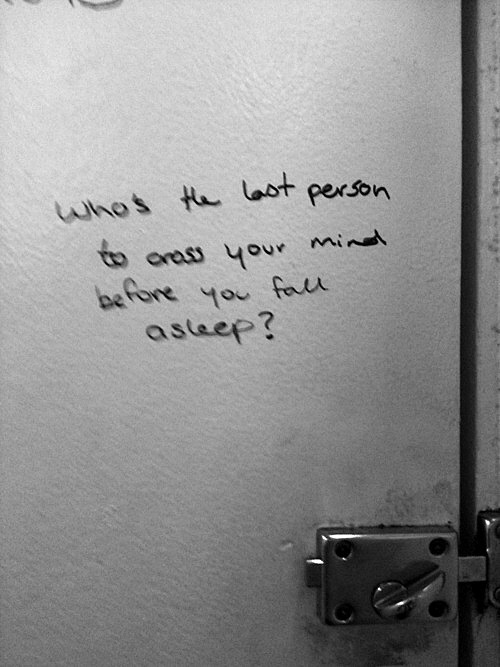 Who's the last person
to cross your mind
before you fall
asleep?